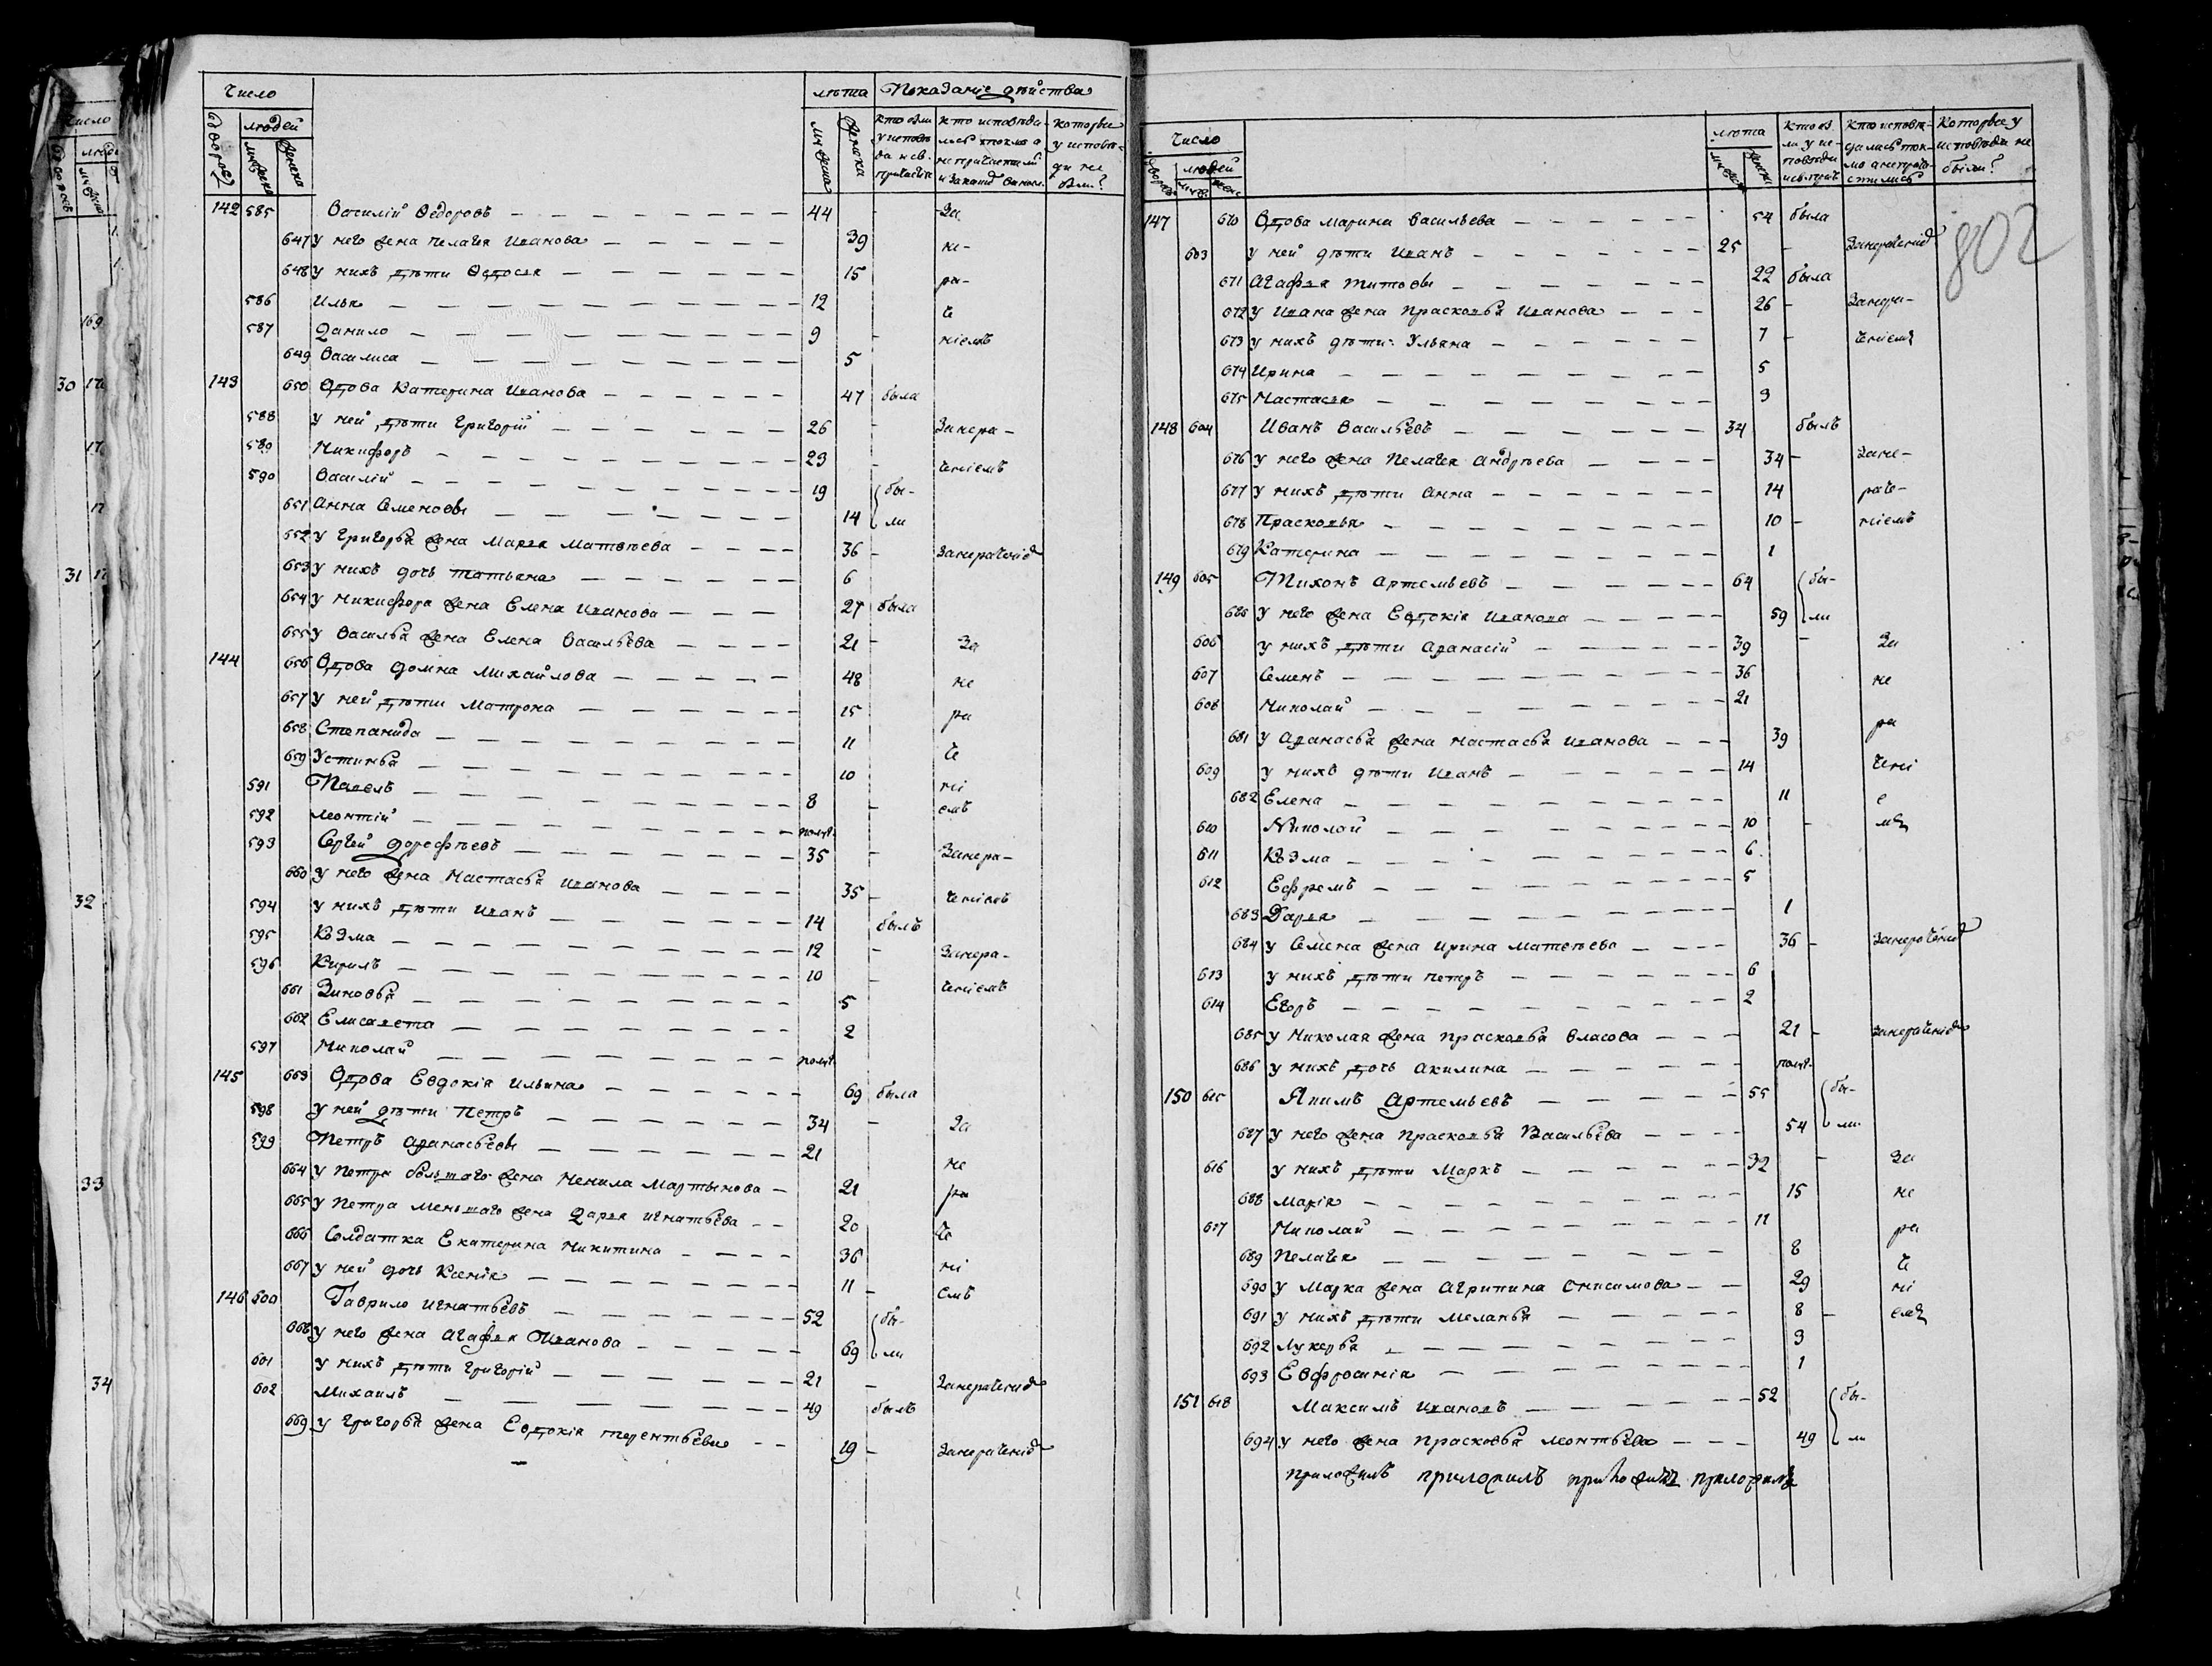 Число
людей
дворовъ
мужска
женска
лѣта
мужска
женска
Показаніе дѣйства
кто были у исповѣди и св. причастія
кто исповѣдались токмо а не причастились и за каковымъ
которые у исповѣди не были?
142 585 Василій Ѳедоровъ 44 - За
647 у него жена Пелагея Иванова 39 не-
648 у нихъ дѣти Ѳедосея 15 ра-
586 Илья 12 че
587 Данило 9 - ніемъ
649 Василиса 5
143 650 Вдова Катерина Иванова 47 была
588 у ней дѣти Григорій 26 - Занера-
589 Никифоръ 23 - ченіемъ
590 Василій 19 бы-
651 Анна Семеновы 14 ли
652 у Григорья жена Марѳа Матвѣева 36 - Занераченіе
653 у нихъ дочь Татьяна 6
654 у Никифора жена Елена Иванова 27 была
655 у Василья жена Елена Васильева 21 - За
144 656 Вдова Домна Михайлова 48 не
657 у ней дѣти Матрона 15 ра
658 Степанида 11 че
659 Устинья 10 ні
591 Павелъ 8 - емъ
592 Леонтій полуг.
593 Сергей Дорофѣевъ 35 - Занера-
660 у него жена Настасья Иванова 35 - ченіемъ
594 у нихъ дѣти Иванъ 14 былъ
595 Козма 12 - Занера-
596 Кирилъ 10 - ченіемъ
661 Зиновья 5
662 Елисавета 2
597 Николай полуг.
145 663 Вдова Евдокія Ильина 69 была
598 у ней дѣти Петръ 34 - За
599 Петръ Аѳанасьевы 21 не
664 у Петра большаго жена Ненила Мартынова 21 ра
665 у Петра меньшаго жена Дарья Игнатьева 20 че
666 Солдатка Екатерина Никитина 36 ні
667 у ней дочь Ксенія 11 - емъ
146 600 Гаврило Игнатьевъ 52 бы-
668 у него жена Агафья Иванова 69 ли
601 у нихъ дѣти Григорій 21 - Занераченіе
602 Михаилъ 49 былъ
669 у Григорья жена Евдокія Терентьева 19 - Занераченіе
Число
людей
лѣта
Кто были у исповѣди и св. прич.
Кто исповѣдались токмо а не причастились
Которые у исповѣди не были?
802
147 670 Вдова Марина Васильева 54 была
603 у ней дѣти Иванъ 25 - Занераченіе
671 Агафья Титовы 22 была
672 у Ивана жена Прасковья Иванова 26 - Занера-
673 у нихъ дѣти: Ульяна 7 - ченіемъ
674 Ирина 5
675 Настасья 3
148 604 Иванъ Васильевъ 34 былъ
676 у него жена Пелагея Андрѣева 34 - Зане-
677 у нихъ дѣти Анна 14 раче-
678 Прасковья 10 - ніемъ
679 Катерина 1
149 605 Тихонъ Артемьевъ 64 бы-
680 у него жена Евдокія Иванова 59 ли
606 у нихъ дѣти Аѳанасій 39 - За
607 Семенъ 36 не
608 Николай 21
681 у Аѳанасья жена Настасья Иванова 39 ра
609 у нихъ дѣти Иванъ 14 чені
682 Елена 11 е
610 Николай 10 - мъ
611 Козма 6
612 Ефремъ 5
683 Дарья 1
684 у Семена жена Ирина Матвѣева 36 - Занераченіе
613 у нихъ дѣти Петръ 6
614 Егоръ 2
685 у Николая жена Прасковья Власова 21 - Занераченіе
686 у нихъ дочь Акилина полуг.
150 615 Якимъ Артемьевъ 55 бы-
687 у него жена Прасковья Васильева 54 ли
616 у нихъ дѣти Маркъ 32 - За
688 Марія 15 не
617 Николай 11 ра
689 Пелагея 8 че
690 у Марка жена Агрипина Онисимова 29 ні
691 у нихъ дѣти Меланья 8 - емъ
692 Лукерья 3
693 Евфросинія 1
151 618 Максимъ Ивановъ 52 бы-
694 у него жена Прасковья Леонтьева 49 ли
приложилъ приложилъ приложилъ приложилъ
30
31
32
33
34